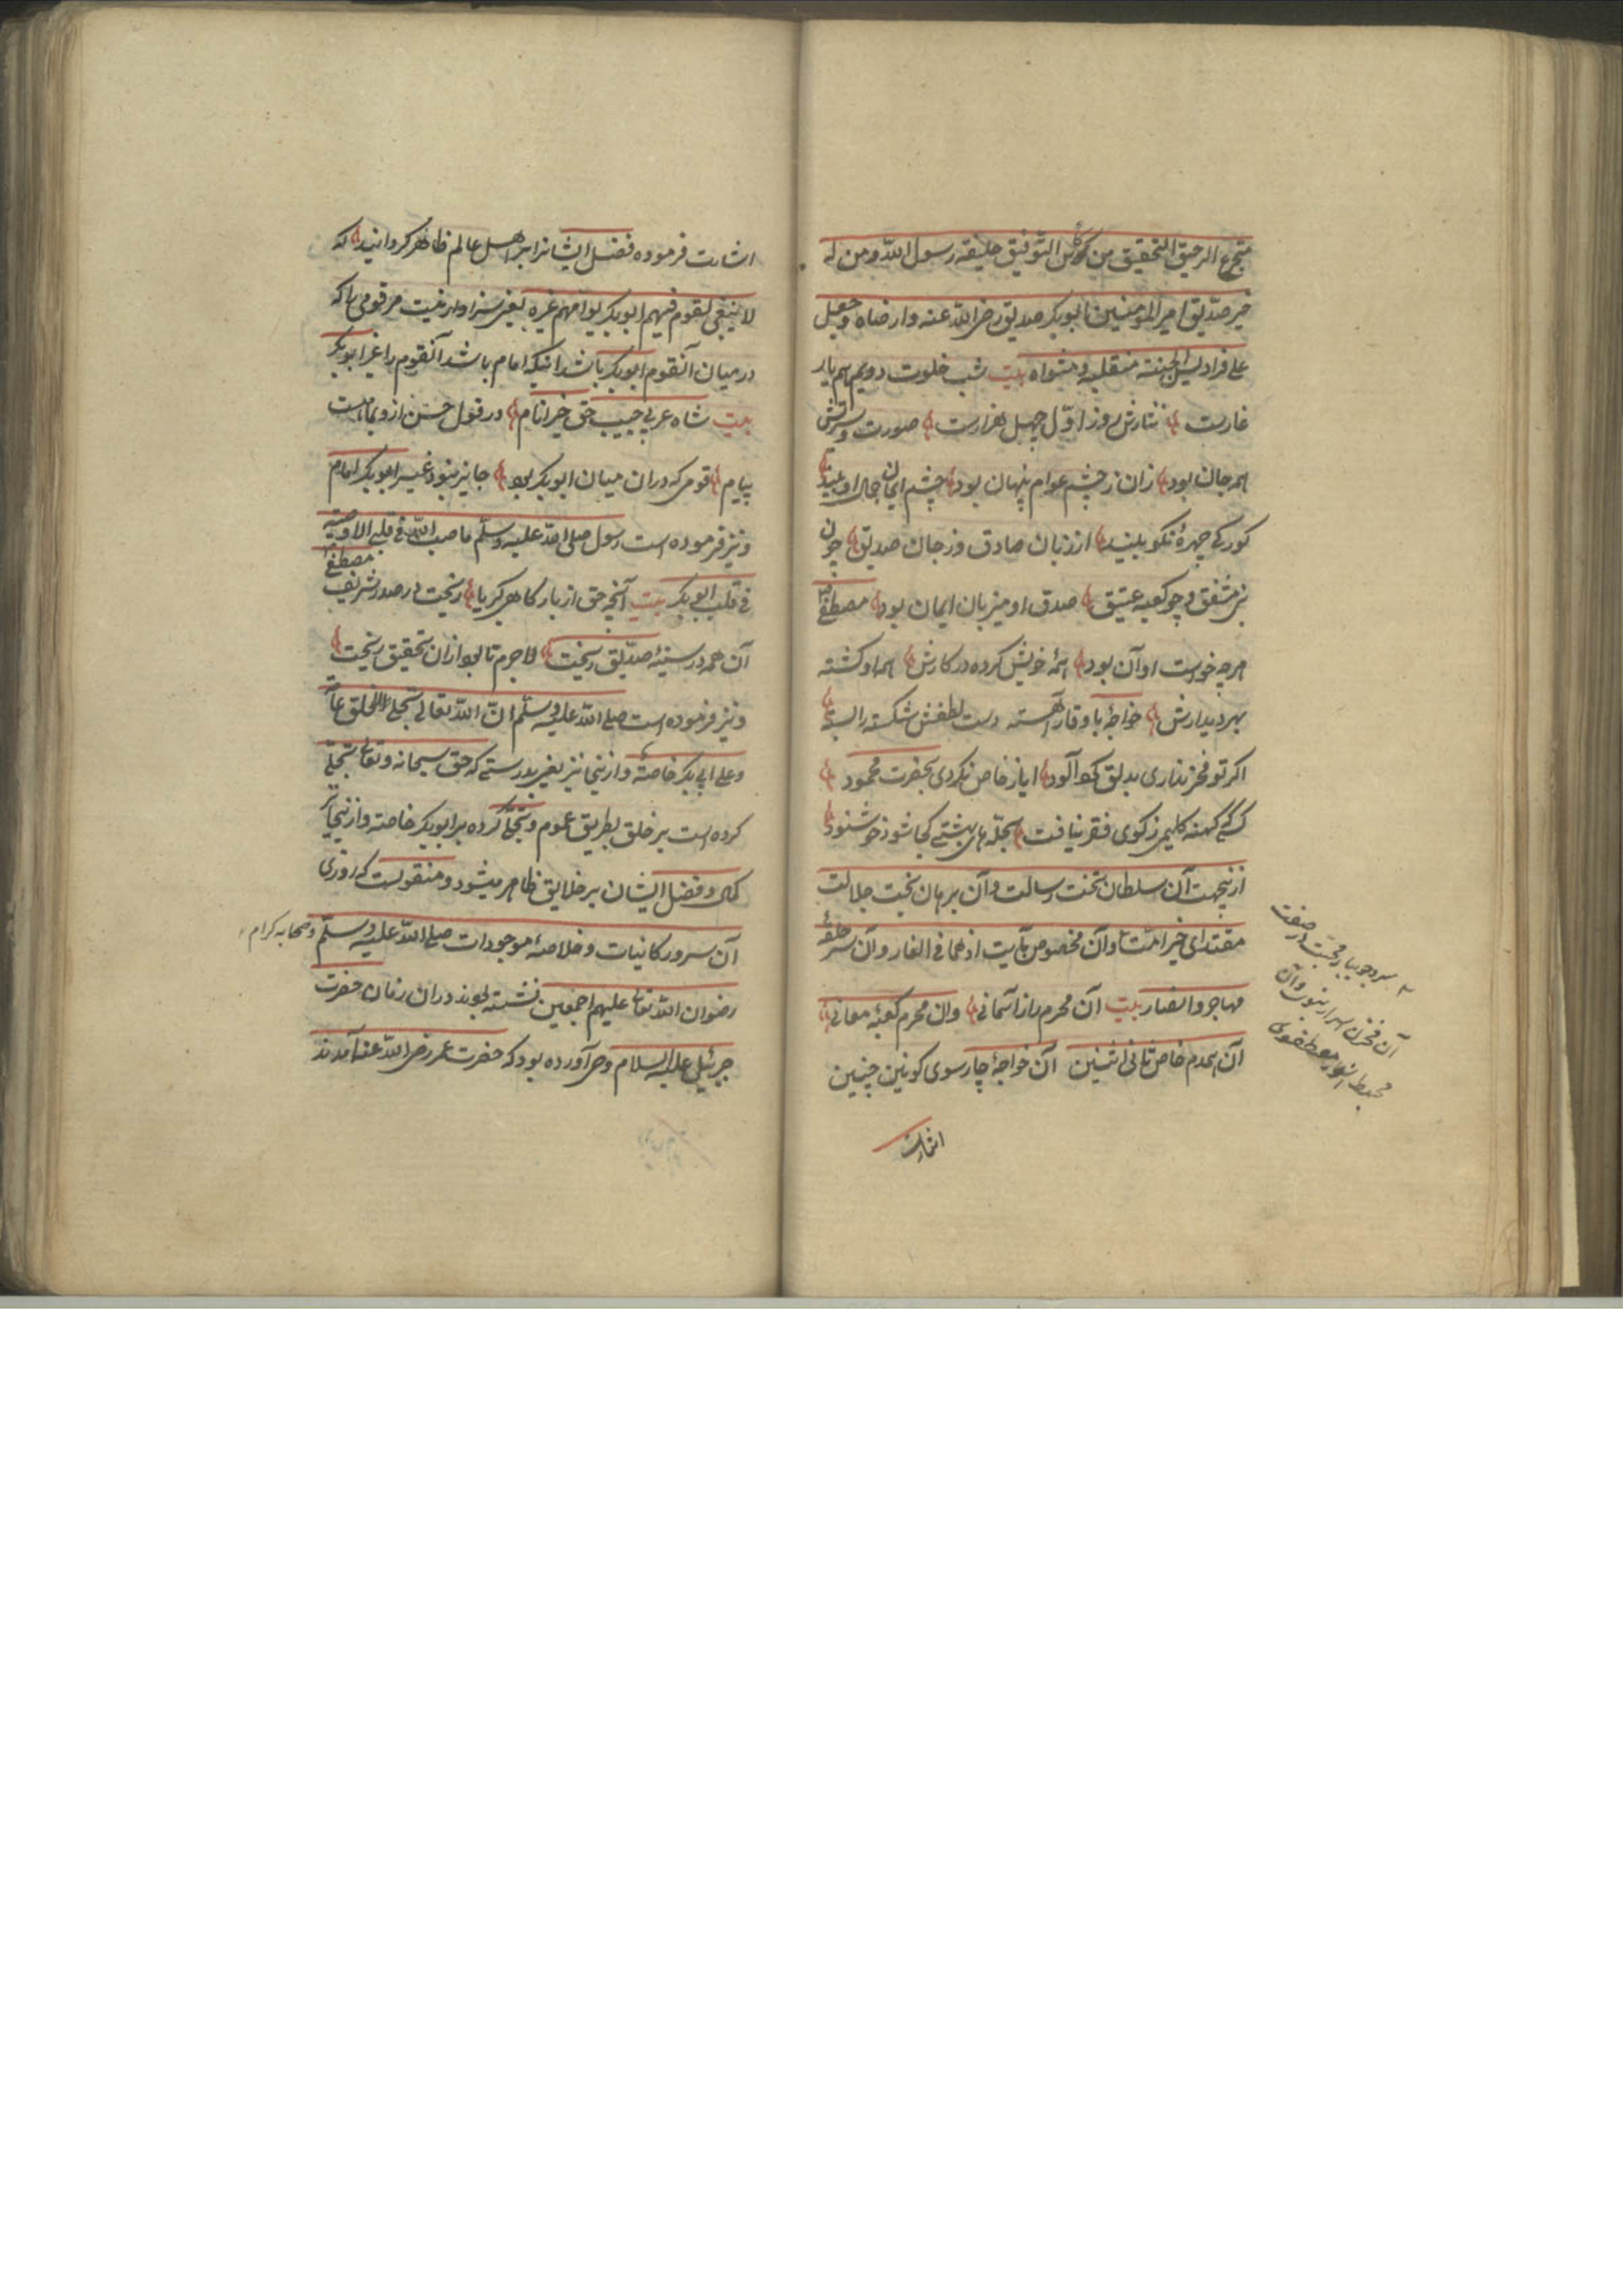 متجرع الرحیق التحقیق من کوس التوفیق خلیفه رسول الله ومن له
خیر صدیق امیر المؤمنین ابوبکر صدیق رضی الله عنه وارضاه وجعل
علی فرادیس الجنة منقلبه ومثواه بیت شب خلوت دویم هم یار
غارست نثارش روز اول چهل هزارست صورت وسیرتش
همه جان بود زان ز چشم عوام پنهان بود چشم ایمان جمال او بیند
کور کی چهرهٔ نکو بیند از زبان صادق و ز جان صدیق چون
نبی مشفق و چو کعبه عتیق صدق او میزبان ایمان بود مصطفی
هرچه خواست او آن بود همه خویش کرده در کارش همه او کشته
بهر دیدارش خواجهٔ با وقار آهسته دست لطفش شکسته را بسته
اکر تو فخر نداری بدلق کرد آلود ایاز خاص نکردی بحضرت محمود
کسی که کهنه کلیمی ز کوی فقر نیافت بحله های بهشتی کجا شود خوشنود
ازینجهت آن سلطان تخت رسالت وآن برهان بخت جلالت
مقتدای خیر امت وآن مخصوص بآیت اذ هما فی الغار وآن سر حلقهٔ
مهاجر وانصار بیت آن محرم راز آسمانی وان محرم کعبهٔ معانی
آن همدم خاص ثانی اثنین آن خواجهٔ چارسوی کونین چنین
اشارت
سرو جویبار محبت در صفت
آن مخزن اسرار نبوت وآن
محیط انوار مصطفوی
اشارت فرموده فضل ایشانرا بر اهل عالم ظاهر کردانید که
لا ینبغی لقوم فیهم ابوبکر یوامهم غیره یعنی سزاوار نیست مر قومی را که
در میان آنقوم ابوبکر باشد انیکه امام باشد آنقوم را غیر ابوبکر
بیت شاه عربی حبیب حق خیر انام در قول حسن ازو بما هست
پیام قومی که دران میان ابوبکر بود جایز نبود غیر ابوبکر امام
ونیز فرموده است رسول صلی الله علیه وسلم ما صب الله فی قلبی الا وصبته
فی قلب ابی بکر بیت آنچه حق از بارکاه کبریا ریخت در صدر شریف مصطفی
آن همه در سینهٔ صدیق ریخت لا جرم تا بود ازان تحقیق ریخت
ونیز فرموده است صلی الله علیه وسلم ان الله تعالی تجلی للخلق عاما
وعلی ابی بکر خاصته وازینجا نیز یعنی بدرستی که حق سبحانه وتعالی تجلی
کرده است بر خلق بطریق عموم وتجلی کرده بر ابوبکر خاصته وازینجا نیز
کمال وفضل ایشان بر خلایق ظاهر میشود ومنقولست که روزی
آن سرور کاینات وخلاصهٔ موجودات صلی الله علیه وسلم وصحابه کرام
رضوان الله تعالی علیهم اجمعین نشسته بودند دران زمان حضرت
جبرئیل علیه السلام وحی آورده بود که حضرت عمر رضی الله عنه آمدند